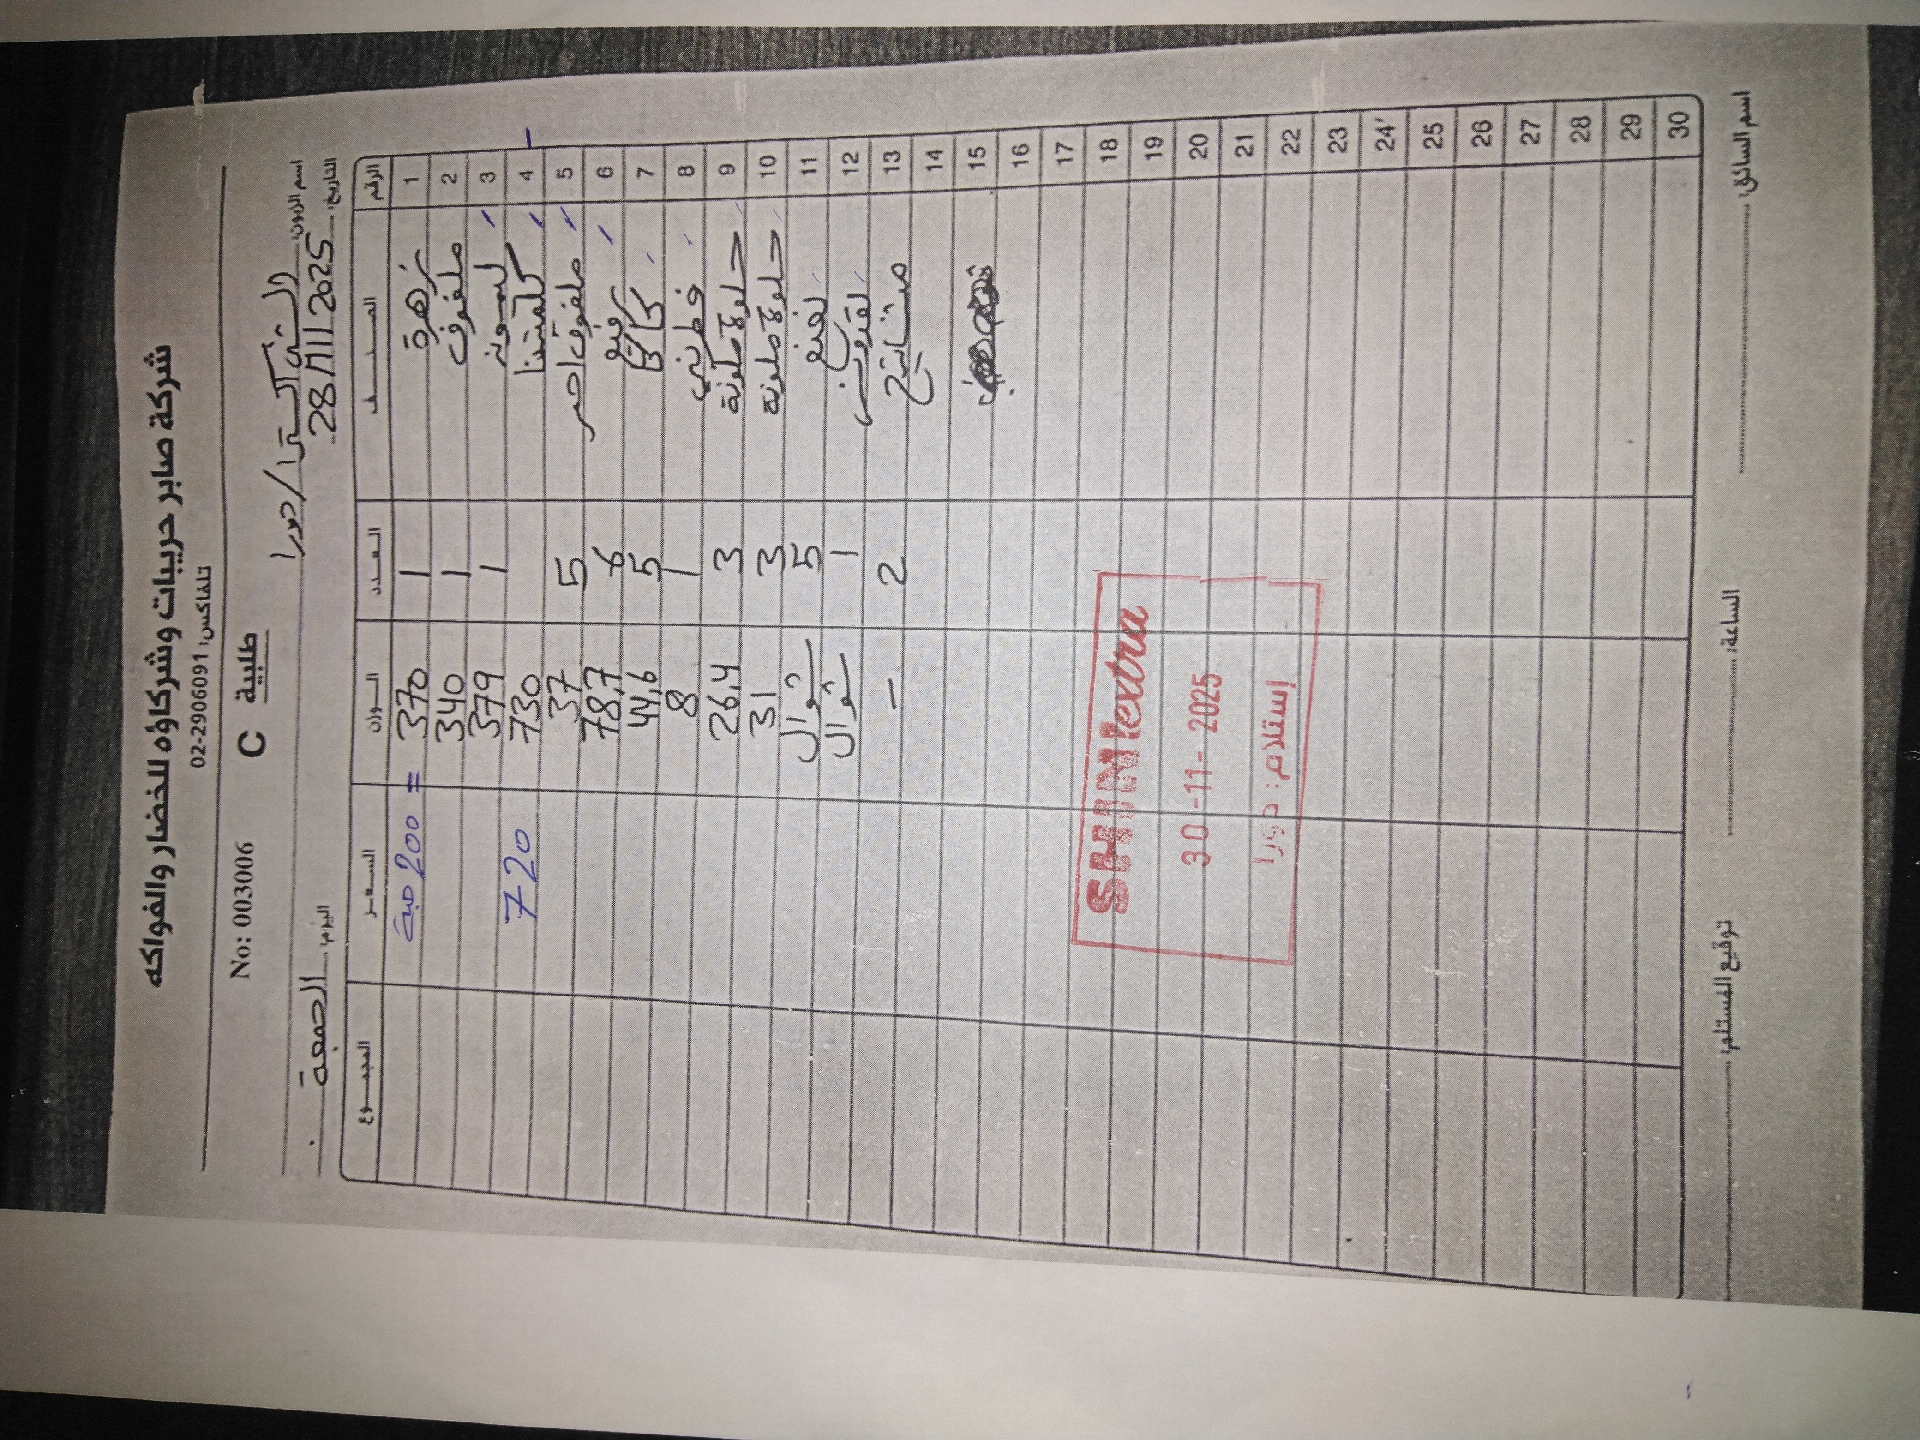 شركة صابر حريبات وشركاؤه للخضار والفواكه
تلفاكس: 02-2906091
No: 003006 C طلبية
اسم الزبون: الشني اكسترا / دورا
التاريخ: 28/11/2025 اليوم: الجمعة
الرقم الصنف العدد الوزن السعر المجموع
1 زهرة 1 370 = 200 حبة
2 ملفوف 1 340
3 ليمون 1 379
4 كلمنتينا 730 720
5 ملفوف احمر 5 37
6 6 78,7
7 كاكا 5 44,6
8 1 8
9 حلوة ملونة 3 26,4
10 حلوة ملونة 3 31
11 5 شوال
12 1 شوال
13 2 -
14
15
16
17
18
19
20
21
22
23
24
25
26
27
28
29
30
SHINI extra
30-11-2025
إستلام: دورا
اسم السائق: الساعة: توقيع المستلم: